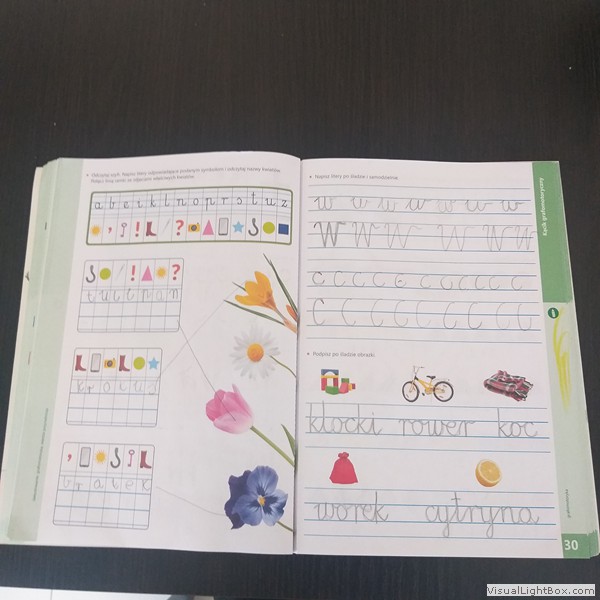 • Odczytaj szyfr. Napisz litery odpowiadające podanym symbolom i odczytaj nazwy kwiatów.
Połącz linią ramki ze zdjęciami właściwych kwiatów.
a b e i k l n o p r s t u z
! / ?
/ ! ?
t u l i p a n
k r o k u s
, !
b r a t e k
• Napisz litery po śladzie i samodzielnie.
w w w w w w w
W W W W W W
c c c c c c c c c c
C C C C C C C C
• Podpisz po śladzie obrazki.
klocki rower koc
worek cytryna
Kącik grafomotoryczny
30
VisualLightBox.com